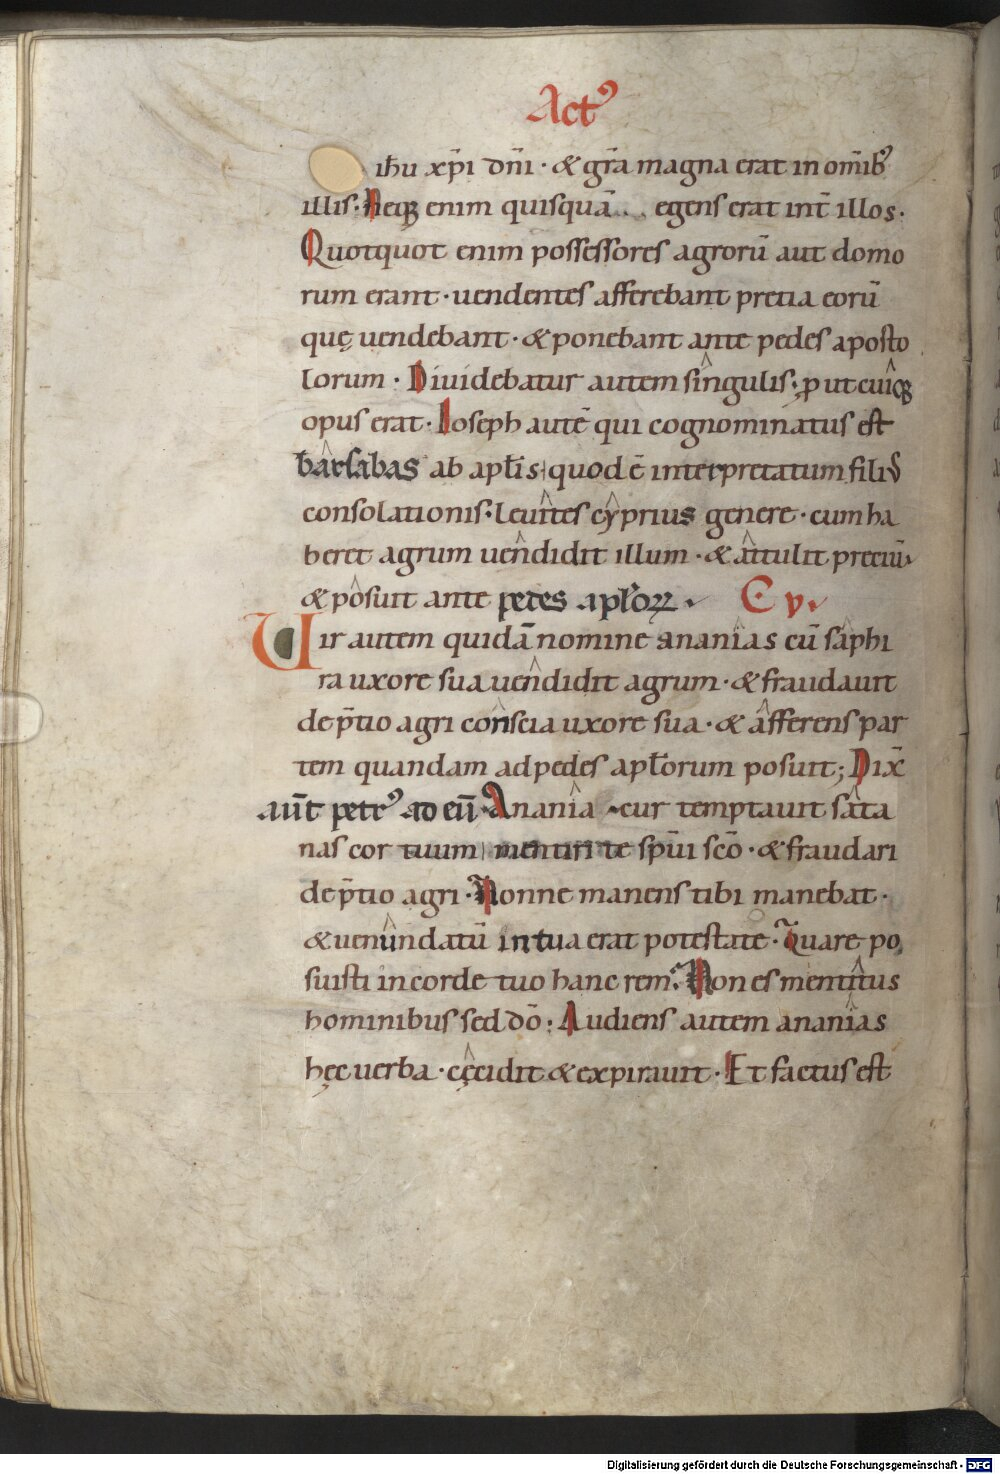 Actꝰ
ih̄u xp̄i dn̄i · & gr̄a magna erat in om̄ibꝰ
illis · Neq; enim quisquā egens erat int̄ illos ·
Quotquot enim possessores agrorū aut domo
rum erant · uendentes afferebant pretia eorū
quę uendebant · & ponebant ante pedes aposto
lorum · Diuidebatur autem singulis · ꝓut cuiq;
opus erat · Ioseph autē qui cognominatus est
barsabas ab apl̄is quod ē interpretatum filiꝰ
consolationis · leuites cyprius genere · cum ha
beret agrum uendidit illum · & attulit preciū
& posuit ante pedes apl̄oꝝ · C v ·
Uir autem quidā nomine ananias cū saphi
ra uxore sua uendidit agrum · & fraudauit
de p̄tio agri conscia uxore sua · & afferens par
tem quandam ad pedes apl̄orum posuit; Dix̄
aūt petrꝰ ad eū · Anania cur temptauit sata
nas cor tuum mentiri te sp̄ui sc̄o · & fraudari
de p̄tio agri · Nonne manens tibi manebat ·
& uenundatū in tua erat potestate · Quare po
suisti in corde tuo hanc rem · Non es mentitus
hominibus sed dō · Audiens autem ananias
hęc uerba · cęcidit & expirauit · Et factus est
Digitalisierung gefördert durch die Deutsche Forschungsgemeinschaft - DFG